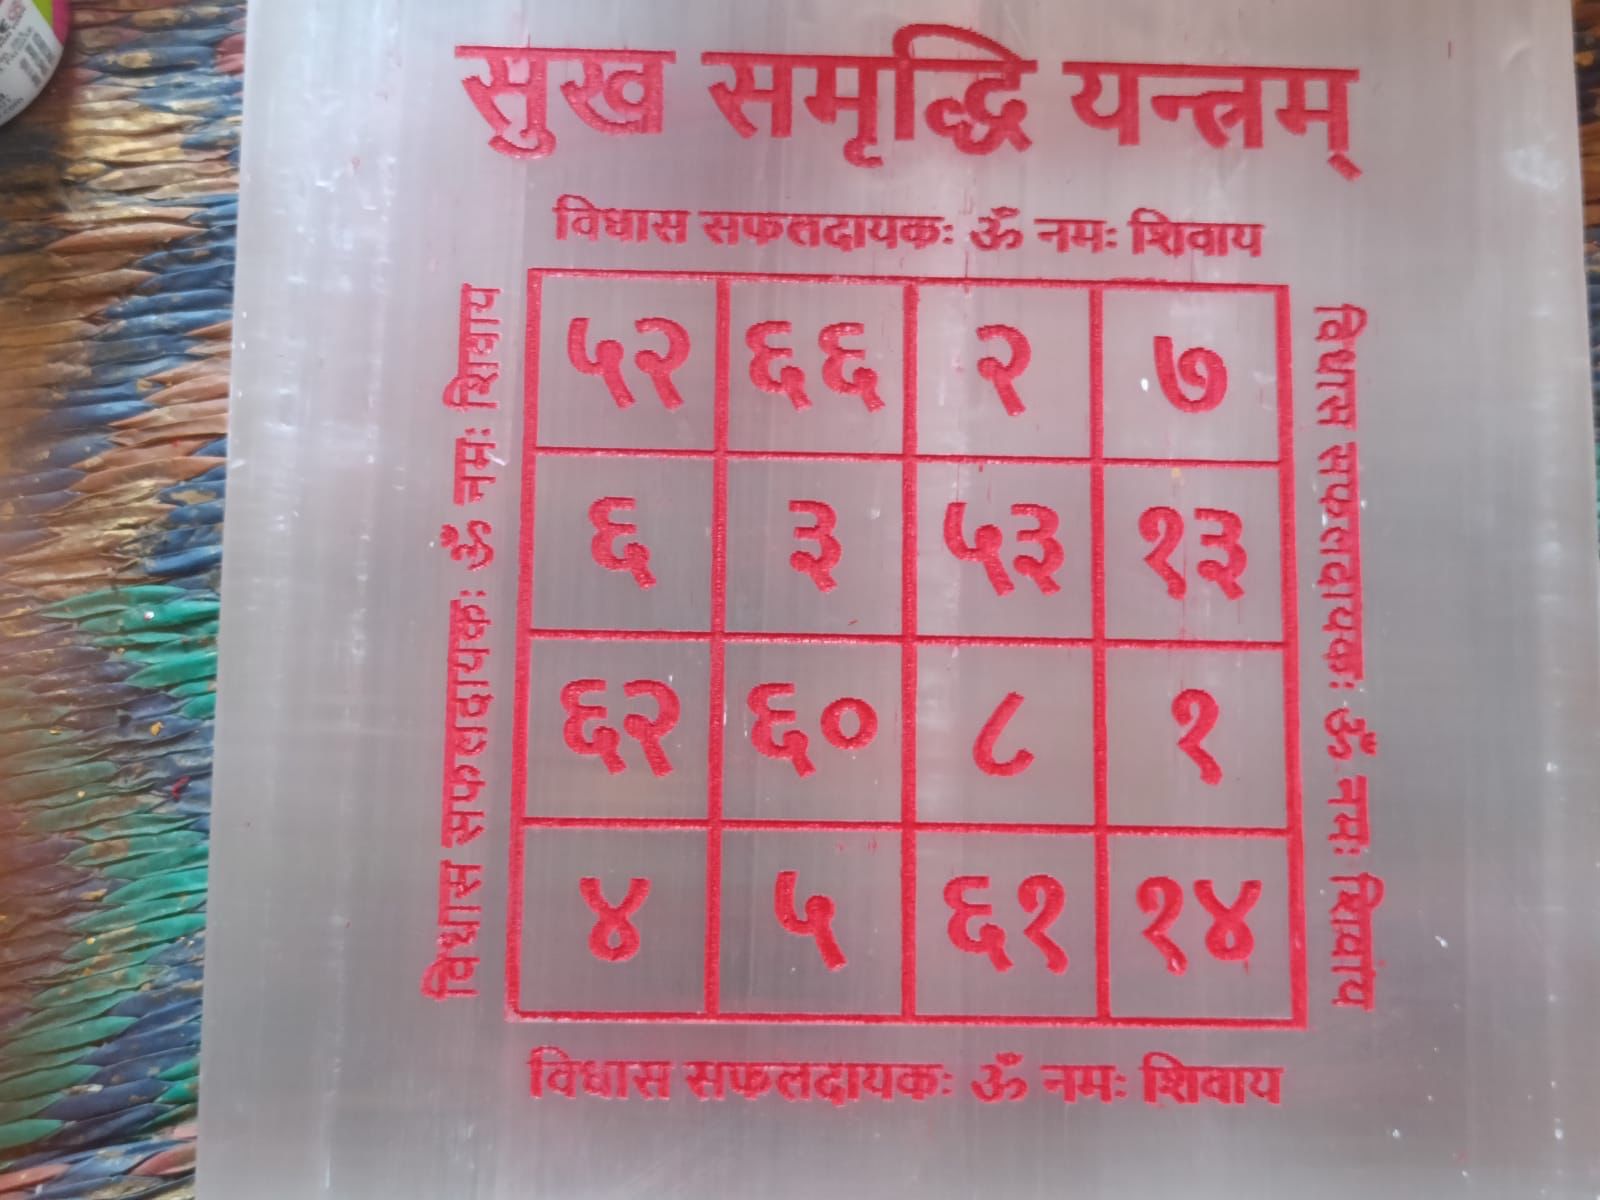 सुख समृद्धि यन्त्रम्
विधास सफलदायकः ॐ नमः शिवाय
विधास सफलदायकः ॐ नमः शिवाय
५२ ६६ २ ७
६ ३ ५३ १३
६२ ६० ८ १
४ ५ ६१ १४
विधास सफलदायकः ॐ नमः शिवाय
विधास सफलदायकः ॐ नमः शिवाय